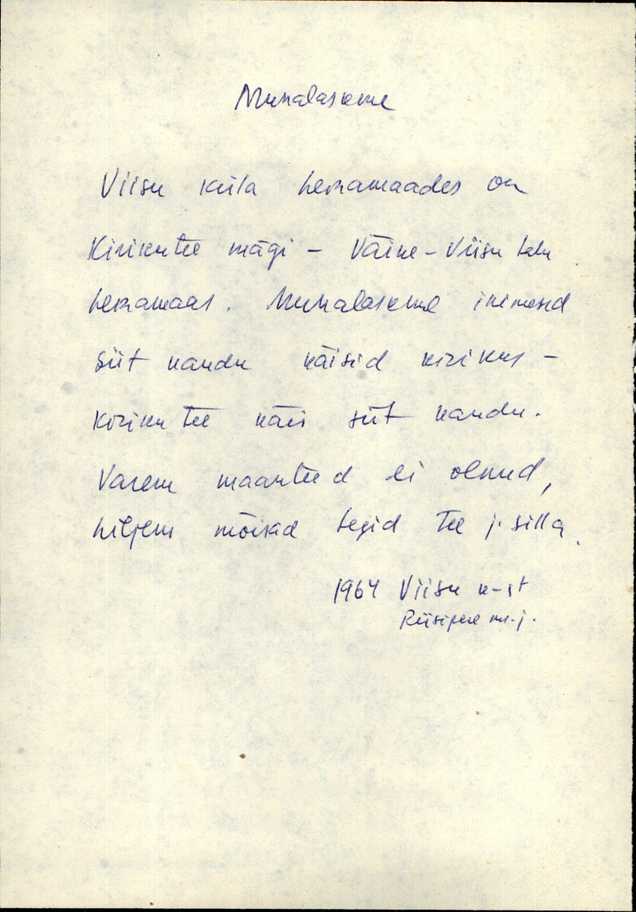 Munalaskme
Viisu küla heinamaades on
Kirikutee mägi – Väike-Viisu talu
heinamaas. Munalaskme inimesed
siit kaudu käisid kirikus –
kirikutee käis siit kaudu.
Varem maanteed ei olnud,
hiljem mõisad tegid tee j. silla.
1964 Viisu k-st
Riisipere